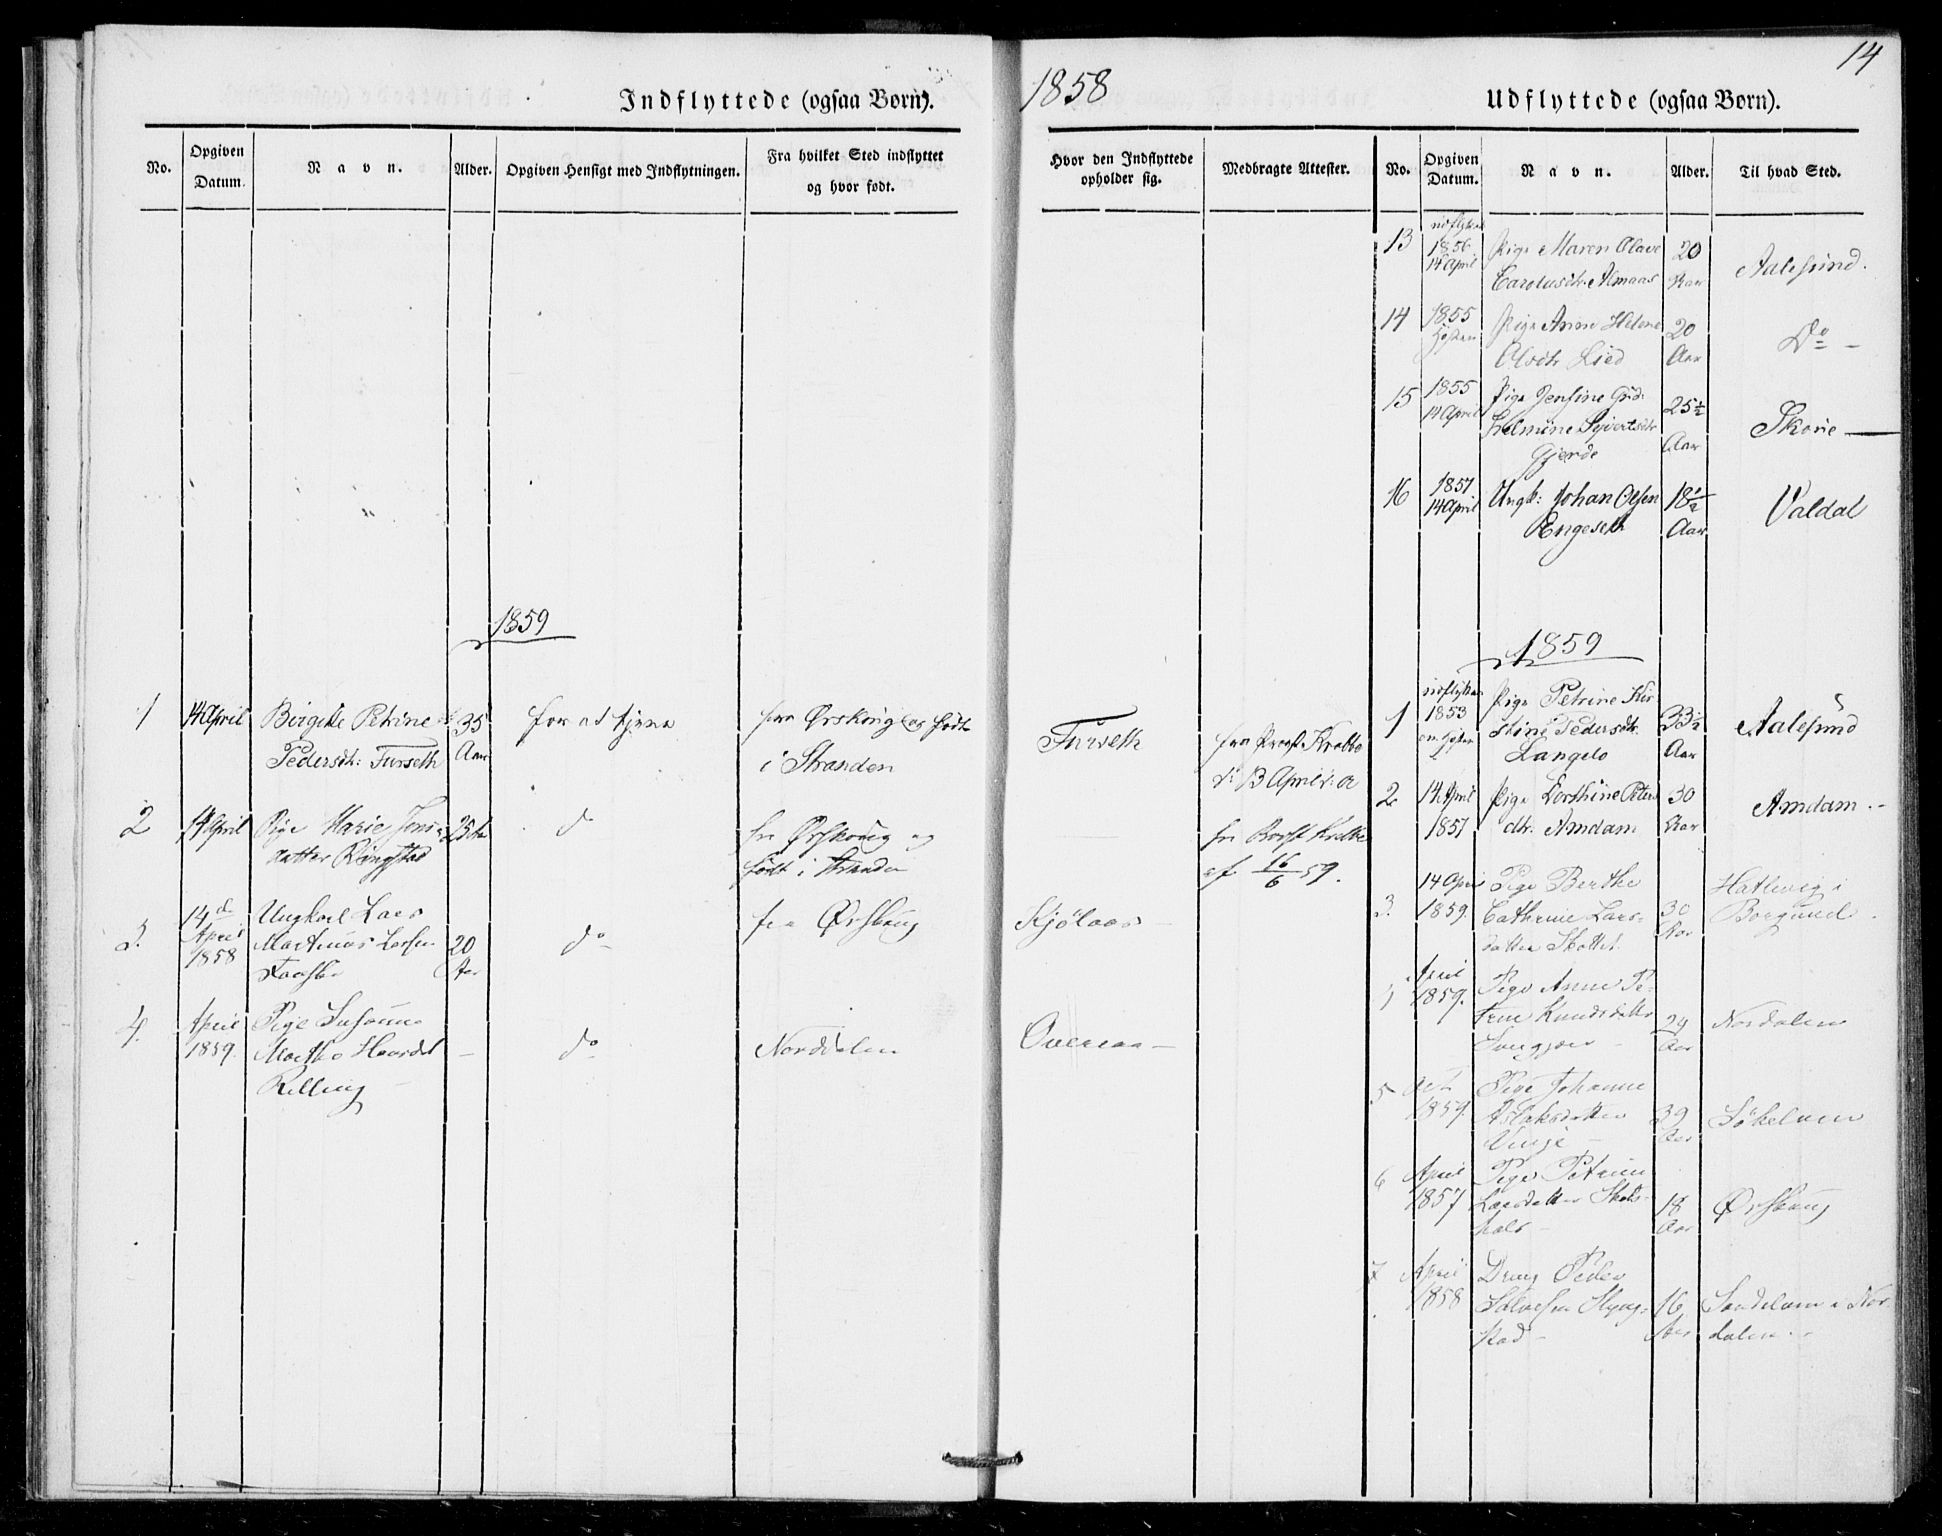 14
1858
Indflyttede (ogsaa Børn).
No.
Opgiven Datum.
Navn.
Alder.
Opgiven Hensigt med Indflytningen.
Fra hvilket Sted indflyttet og hvor født.
1859
1 14 April Birgitte Petrine 35 for at tjene fra Ørskoug og født
Pedersdtr: Furseth Aar i Stranden
2 14 April Pige Marie Jens- 25 do fra Ørskoug og
datter Ringstad født i Stranden
3. 14de Ungkarl Lars fra Ørskoug
April Martinus Larsen 20 do
1858 Aar
4. April Pige Susanne
1859. Marthe do Norddalen
Relling
Udflyttede (ogsaa Børn).
Hvor den Indflyttede opholder sig.
Medbragte Attester.
No.
Opgiven Datum.
Navn.
Alder.
Til hvad Sted.
Furseth fra Provst Krabbe
13 April
fra Provst Krabbe
af 16/6 59.
Kjølaas
Overaa
13 1856 Pige Maren Olave 20 Aalesund.
14 April Carolusdtr. Almaas Aar
14 1855 Pige Anne Helene 20 Do
Høsten Olsdtr Lied Aar
15 1855 Pige Jensine Gud- 25½
14 April Sivertsdtr Aar
Gjerde
16 1857 Ungk: Johan Olsen 18½ Valdal
14 April Engeseth Aar
1859
1 1853 Pige Petrine Kir 33½ Aalesund
stine Pedersdtr. Aar
Langelo
2 14 April Pige Dorthine Peters 30 Amdam
1857 dtr. Amdam Aar
3. 14 April Pige Berthe Hatlevig i
1859. Cathrine Lars- 30 Borgund
datter Skottet Aar
April Pige Anne Pe-
1859. trine Knudsdatter 29 Nordalen
Aar
5 Oct Pige Johanne
1859. Aslaksdatter 39 Søkelven
Vinje Aar
6 April Pige Petrine
1857 Larsdatter 18 Ørskoug
Aar
7 April Dreng Peder
1858 16 i Nor-
stad Aar dalen